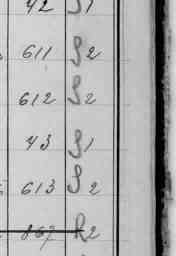 42 S1
611 S2
612 S2
43 S1
613 S2
867 R2